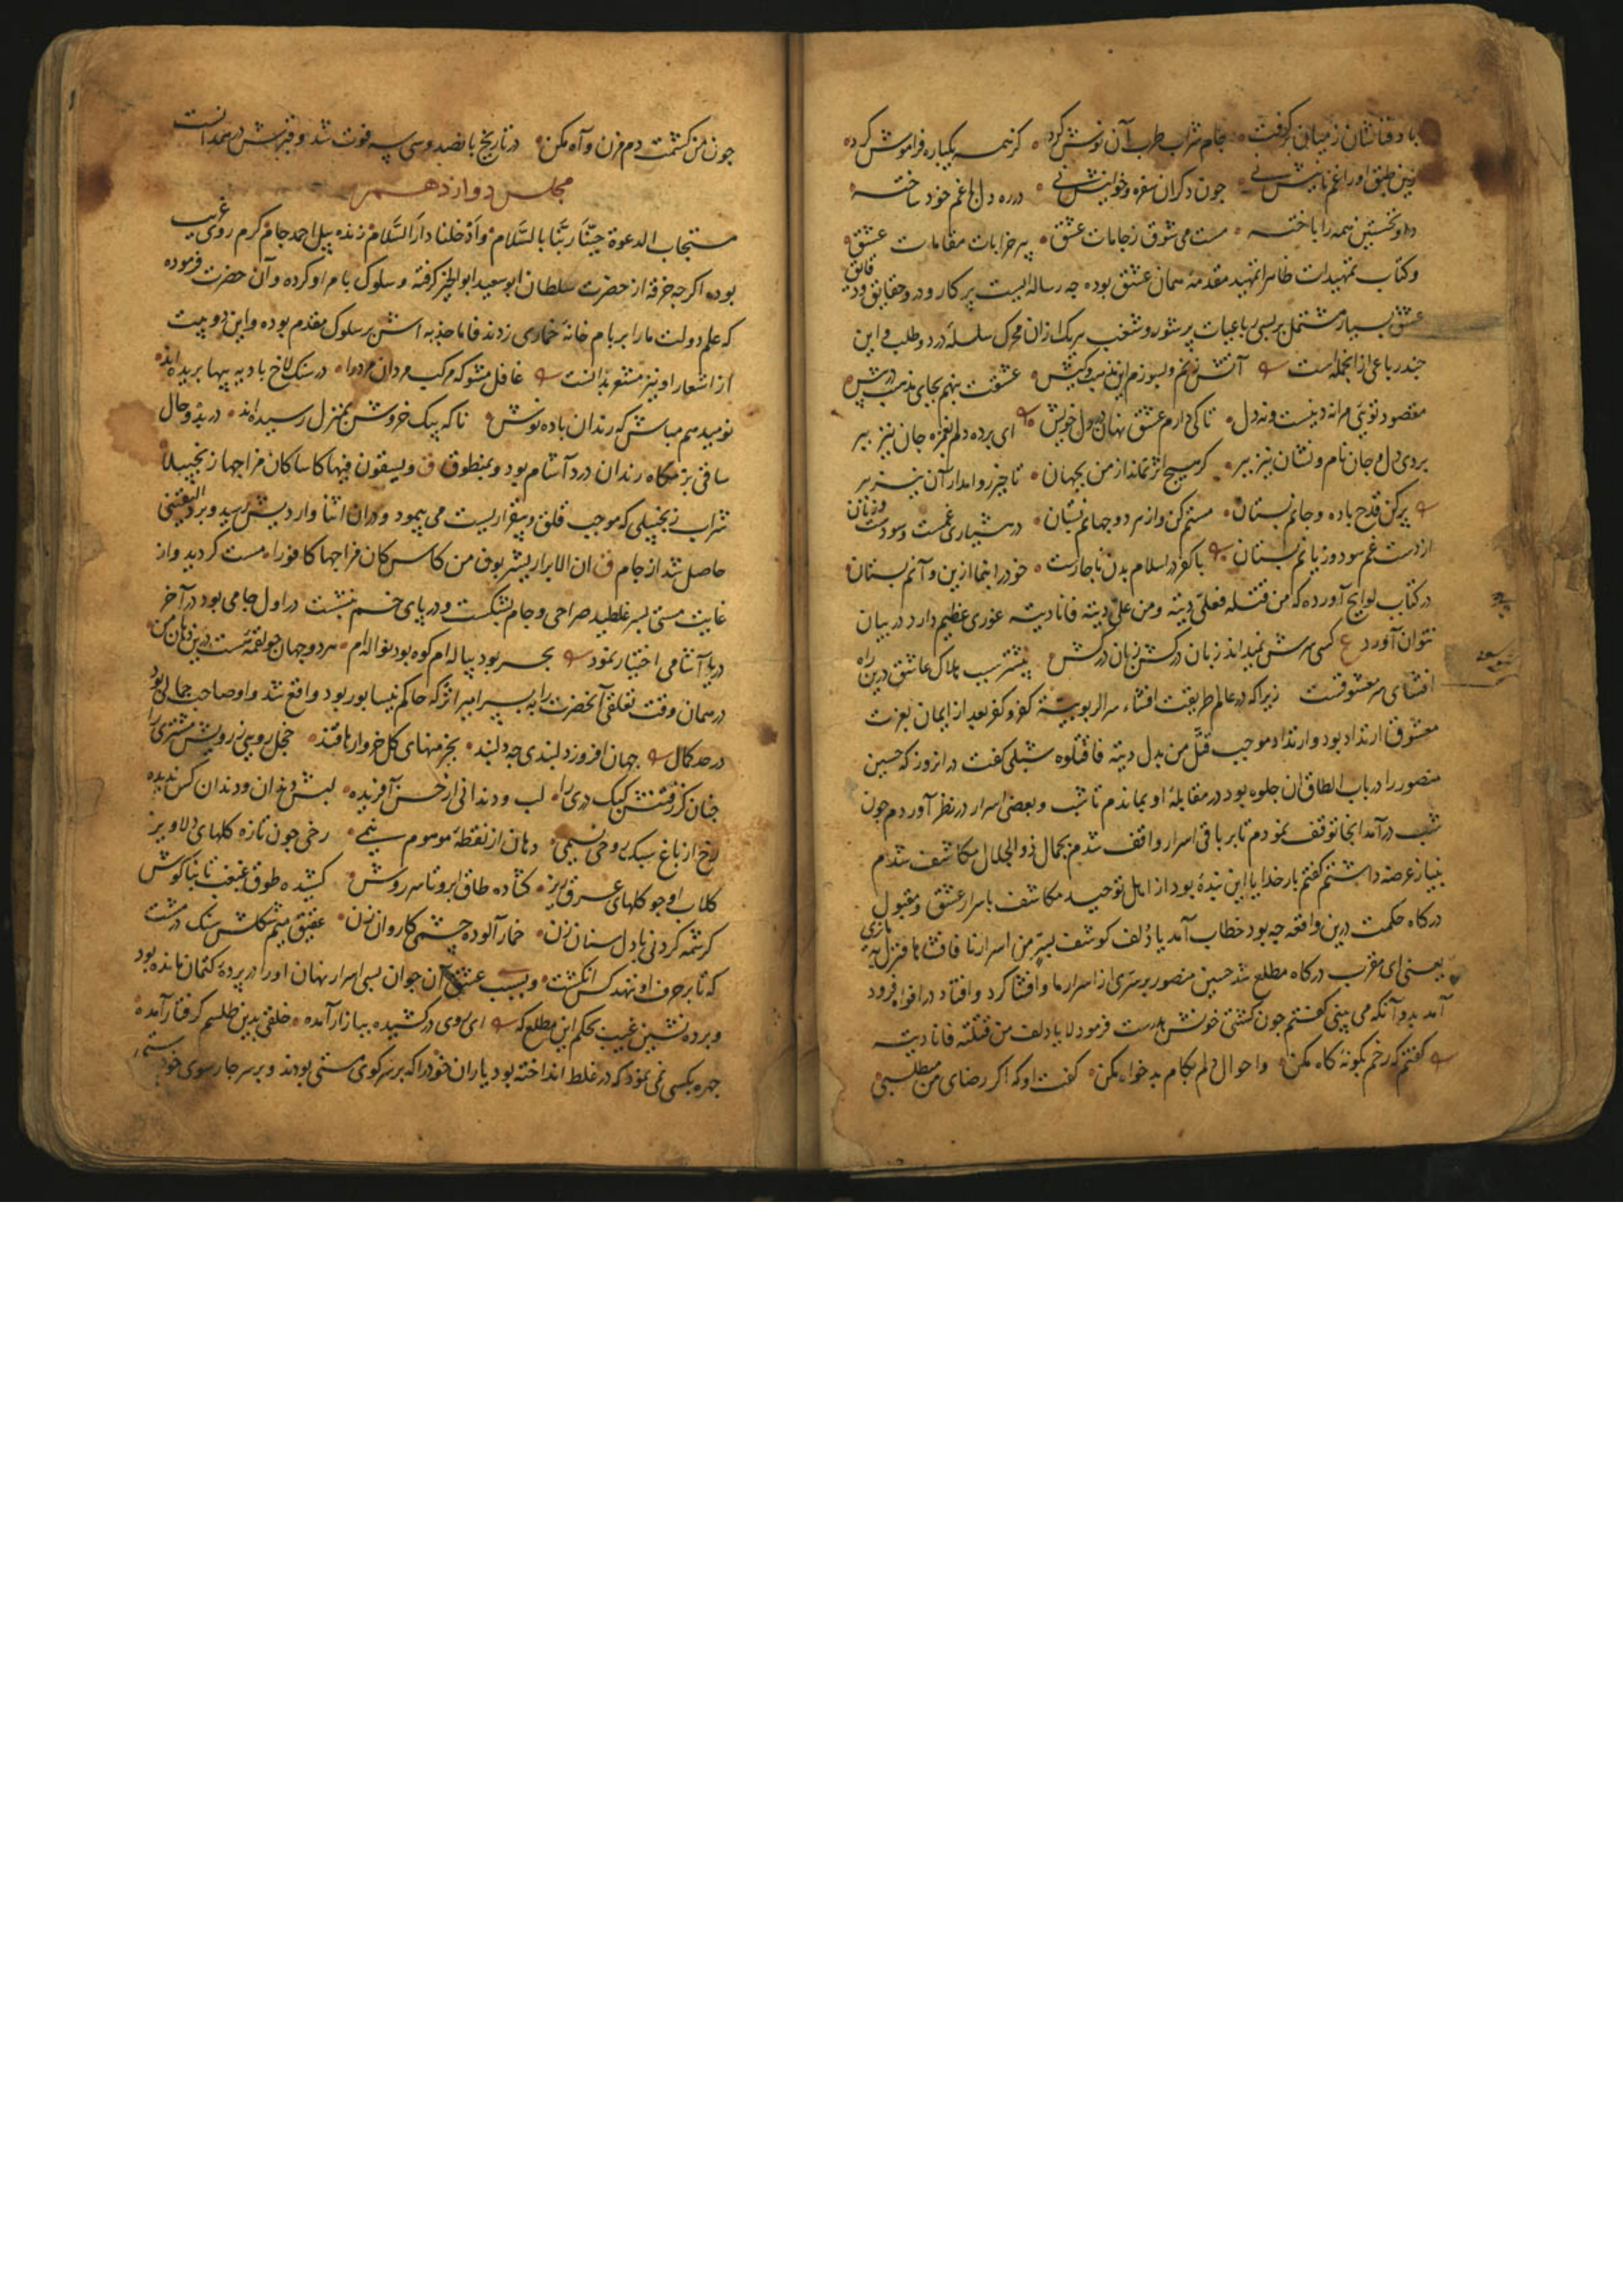 جام شراب طرب آن نوش کرد کز همه یکباره فراموش کرد
چون دکران سفره و خوانیش نی در ره دل با غم خود ساخته
و نخستین همه را باخته مست می شوق ز جامات عشق پیر خرابات مقامات عشق
وکتاب تمهیدات ظاهرا تمهید مقدمهٔ همان عشق بوده چه رساله ایست پرکار و درو حقایق و دقایق
عشق بسیار مشتمل بر بسی رباعیات پر شور و شغب هریک ازان محرک سلسلهٔ درد و طلب و این
چند رباعی ازانجمله است آتش بزنم و بسوزم این مذهب و کیش عشقت بنهم بجای مذهب در پیش
تا کی دارم عشق نهان در دل خویش مقصود توئی مرا نه دینست و نه دل ای برده دلم بغمزه جان نیز ببر
بردی دل و جان نام و نشان نیز ببر کر هیچ اثر نماند از من بجهان تاخیر روا مدار آن نیز ببر
پر کن قدح باده و جانم بستان مستم کن و از هر دو جهانم بستان در هشیاری غمست و سودست و زیان
از دست غم سود و زیانم بستان با کفر در اسلام بدن ناچارست خود را بنما ازین و آنم بستان
در کتاب لوایح آورده که من قتلته فعلی دیته ومن علی دیته فانا دیته غوری عظیم دارد در بیان
نتوان آورد ع کسی سرش نمیداند زبان درکش زبان درکش بیشتر سبب هلاک عاشق درین راه
افشای سر معشوقست زیرا که در عالم طریقت افشاء سر الربوبیة کفر و کفر بعد از ایمان بعزت
معشوق ارتداد بود وارتداد موجب قتل من بدل دینه فاقتلوه شبلی گفت در انروز که حسین
منصور را در باب الطاق ان جلوه بود در مقابلهٔ او بماندم تا شب و بعضی اسرار در نظر آوردم چون
شب درآمد انجا توقف نمودم تا بر باقی اسرار واقف شدم بجمال ذوالجلال مکاشف شدم
بنیاز عرضه داشتم کفتم بار خدایا این بندهٔ بود از اهل توحید مکاشف باسرار عشق و مقبول
درکاه حکمت درین واقعه چه بود خطاب آمد یا دلف کوشف بسر من اسرارنا فافشاها فنزل به ما تری
یعنی ای مقرب درکاه مطلع شد حسین منصور بر سری از اسرار ما و افشا کرد و افتاد در افواه فرود
آمد بدو آنکه می بینی کفتم چون کشتی خونش هدرست فرمود لا یا دلف من قتلته فانا دیته
کفتم که رخم بکونهٔ کاه مکن واحوال دلم بکام بدخواه مکن کفت او که اکر رضای من میطلبی
چون من کشمت دم مزن و آه مکن در تاریخ پانصد و سی سه فوت شد و قبرش در همدانست
مجلس دوازدهم
مستجاب الدعوة حیّنا ربّنا بالسّلام وادخلنا دارالسّلام زنده پیل احمد جام کرم روی غریب
بوده اکرچه خرقه از حضرت سلطان ابوسعید ابوالخیر کرفته و سلوک بامر او کرده و آن حضرت فرموده
که علم دولت ما را بر بام خانهٔ خماری زدند فاما جذبه اش بر سلوک مقدم بوده و این دو بیت
از اشعار او نیز مشعر بدانست غافل مشو که مرکب مردان مرد را در سنکلاخ بادیه پیها بریده اند
نومید هم مباش که رندان باده نوش ناکه بیک خروش بمنزل رسیده اند
ساقی بزمکاه رندان دردآشام بود و بمنطوق ویسقون فیها کاسا کان مزاجها زنجبیلا
شراب زنجبیلی که موجب قلق و بیقراریست می پیمود و دران اثنا واردیش رسید و برد الیقینی
حاصل شد از جام ان الابرار یشربون من کاس کان مزاجها کافورا مست کردید و از
غایت مستی بسر غلطید صراحی و جام بشکست و در پای خم بنشست در اول جامی بود در آخر
دریاآشامی اختیار نمود بحر بود پیاله ام کوه بود نواله ام هر دو جهان چو لقمه ئیست درین دهان من
در همان وقت تعلقی آنحضرت را به پسر امیر انزکه حاکم نیسابور بود واقع شد و او صاحب جمالی بود
در حد کمال جهان افروز دلبندی چه دلبند بخرمنهای کل خروارها قند خجل رویی ز رویش مشتری را
چنان کز رفتنش کبک دری را لب و دندانی از حسن آفریده لبش دندان و دندان کس ندیده
رخ از باغ سبکروحی نسیمی دهان از نقطهٔ موهوم نیمی رخی چون تازه کلهای دلاویز
کلاب او چو کلهای عرق ریز کشاده طاق ابرو تا سر دوش کشیده طوق غبغب تا بناکوش
کرشمه کردنی با دل سنان زن خمارآلوده چشمی کاروان زن عقیق میم شکلش سنک در مشت
که تا بر حرف او ننهد کس انکشت و بسبب عشق آن جوان بسی اسرار نهان او را در پردهٔ کتمان مانده بود
و پرده نشین غیب بحکم این مطلع که ای روی درکشیده ببازار آمده خلقی بدین طلسم کرفتار آمده
چهره بکسی نمی نمود که در غلط انداخته بود یاران خود را که بر سر کوی مستی بودند و بر سر چارسوی خود